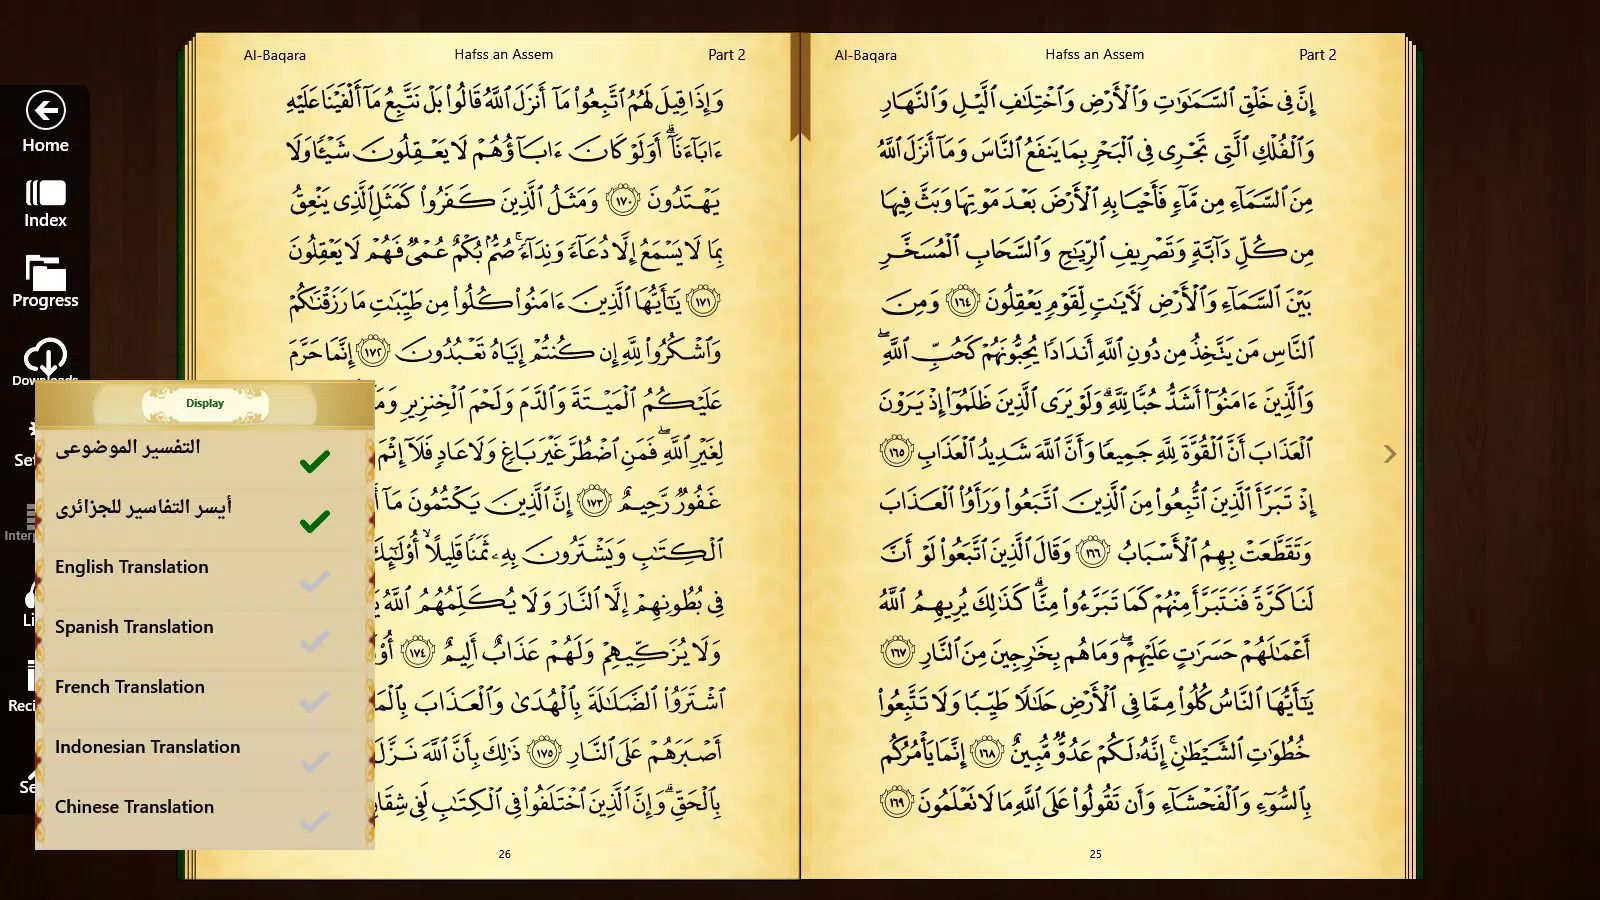 Home
Index
Progress
Al-Baqara Hafss an Assem Part 2
إِنَّ فِى خَلْقِ ٱلسَّمَـٰوَٰتِ وَٱلْأَرْضِ وَٱخْتِلَـٰفِ ٱلَّيْلِ وَٱلنَّهَارِ
وَٱلْفُلْكِ ٱلَّتِى تَجْرِى فِى ٱلْبَحْرِ بِمَا يَنفَعُ ٱلنَّاسَ وَمَآ أَنزَلَ ٱللَّهُ
مِنَ ٱلسَّمَآءِ مِن مَّآءٍ فَأَحْيَا بِهِ ٱلْأَرْضَ بَعْدَ مَوْتِهَا وَبَثَّ فِيهَا
مِن كُلِّ دَآبَّةٍ وَتَصْرِيفِ ٱلرِّيَـٰحِ وَٱلسَّحَابِ ٱلْمُسَخَّرِ
بَيْنَ ٱلسَّمَآءِ وَٱلْأَرْضِ لَـَٔايَـٰتٍ لِّقَوْمٍ يَعْقِلُونَ ١٦٤ وَمِنَ
ٱلنَّاسِ مَن يَتَّخِذُ مِن دُونِ ٱللَّهِ أَندَادًا يُحِبُّونَهُمْ كَحُبِّ ٱللَّهِ ۖ
وَٱلَّذِينَ ءَامَنُوٓا۟ أَشَدُّ حُبًّا لِّلَّهِ ۗ وَلَوْ يَرَى ٱلَّذِينَ ظَلَمُوٓا۟ إِذْ يَرَوْنَ
ٱلْعَذَابَ أَنَّ ٱلْقُوَّةَ لِلَّهِ جَمِيعًا وَأَنَّ ٱللَّهَ شَدِيدُ ٱلْعَذَابِ ١٦٥
إِذْ تَبَرَّأَ ٱلَّذِينَ ٱتُّبِعُوا۟ مِنَ ٱلَّذِينَ ٱتَّبَعُوا۟ وَرَأَوُا۟ ٱلْعَذَابَ
وَتَقَطَّعَتْ بِهِمُ ٱلْأَسْبَابُ ١٦٦ وَقَالَ ٱلَّذِينَ ٱتَّبَعُوا۟ لَوْ أَنَّ
لَنَا كَرَّةً فَنَتَبَرَّأَ مِنْهُمْ كَمَا تَبَرَّءُوا۟ مِنَّا ۗ كَذَٰلِكَ يُرِيهِمُ ٱللَّهُ
أَعْمَـٰلَهُمْ حَسَرَٰتٍ عَلَيْهِمْ ۖ وَمَا هُم بِخَـٰرِجِينَ مِنَ ٱلنَّارِ ١٦٧
يَـٰٓأَيُّهَا ٱلنَّاسُ كُلُوا۟ مِمَّا فِى ٱلْأَرْضِ حَلَـٰلًا طَيِّبًا وَلَا تَتَّبِعُوا۟
خُطُوَٰتِ ٱلشَّيْطَـٰنِ ۚ إِنَّهُۥ لَكُمْ عَدُوٌّ مُّبِينٌ ١٦٨ إِنَّمَا يَأْمُرُكُم
بِٱلسُّوٓءِ وَٱلْفَحْشَآءِ وَأَن تَقُولُوا۟ عَلَى ٱللَّهِ مَا لَا تَعْلَمُونَ ١٦٩
25
Al-Baqara Hafss an Assem Part 2
وَإِذَا قِيلَ لَهُمُ ٱتَّبِعُوا۟ مَآ أَنزَلَ ٱللَّهُ قَالُوا۟ بَلْ نَتَّبِعُ مَآ أَلْفَيْنَا عَلَيْهِ
ءَابَآءَنَآ ۗ أَوَلَوْ كَانَ ءَابَآؤُهُمْ لَا يَعْقِلُونَ شَيْـًٔا وَلَا
يَهْتَدُونَ ١٧٠ وَمَثَلُ ٱلَّذِينَ كَفَرُوا۟ كَمَثَلِ ٱلَّذِى يَنْعِقُ
بِمَا لَا يَسْمَعُ إِلَّا دُعَآءً وَنِدَآءً ۚ صُمٌّۢ بُكْمٌ عُمْىٌ فَهُمْ لَا يَعْقِلُونَ
١٧١ يَـٰٓأَيُّهَا ٱلَّذِينَ ءَامَنُوا۟ كُلُوا۟ مِن طَيِّبَـٰتِ مَا رَزَقْنَـٰكُمْ
وَٱشْكُرُوا۟ لِلَّهِ إِن كُنتُمْ إِيَّاهُ تَعْبُدُونَ ١٧٢ إِنَّمَا حَرَّمَ
عَلَيْكُمُ ٱلْمَيْتَةَ وَٱلدَّمَ وَلَحْمَ ٱلْخِنزِيرِ
لِغَيْرِ ٱللَّهِ ۖ فَمَنِ ٱضْطُرَّ غَيْرَ بَاغٍ وَلَا عَادٍ فَلَآ إِثْمَ
غَفُورٌ رَّحِيمٌ ١٧٣ إِنَّ ٱلَّذِينَ يَكْتُمُونَ مَآ
ٱلْكِتَـٰبِ وَيَشْتَرُونَ بِهِۦ ثَمَنًا قَلِيلًا ۙ أُو۟لَـٰٓئِكَ
فِى بُطُونِهِمْ إِلَّا ٱلنَّارَ وَلَا يُكَلِّمُهُمُ ٱللَّهُ
وَلَا يُزَكِّيهِمْ وَلَهُمْ عَذَابٌ أَلِيمٌ ١٧٤
ٱشْتَرَوُا۟ ٱلضَّلَـٰلَةَ بِٱلْهُدَىٰ وَٱلْعَذَابَ
أَصْبَرَهُمْ عَلَى ٱلنَّارِ ١٧٥ ذَٰلِكَ بِأَنَّ ٱللَّهَ نَزَّلَ
بِٱلْحَقِّ ۗ وَإِنَّ ٱلَّذِينَ ٱخْتَلَفُوا۟ فِى ٱلْكِتَـٰبِ لَفِى
26
Display
التفسير الموضوعى
أيسر التفاسير للجزائرى
English Translation
Spanish Translation
French Translation
Indonesian Translation
Chinese Translation